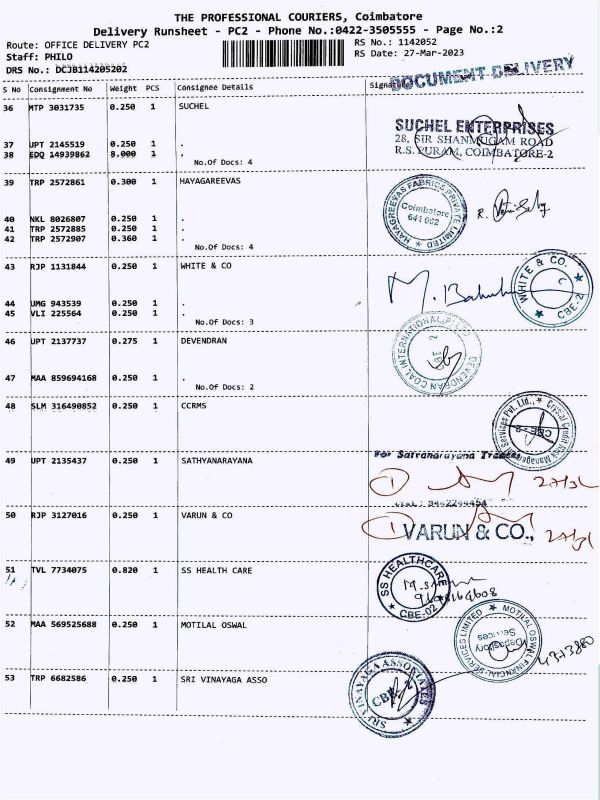 THE PROFESSIONAL COURIERS, Coimbatore
Delivery Runsheet - PC2 - Phone No.:0422-3505555 - Page No.:2
Route: OFFICE DELIVERY PC2
RS No.: 1142052
Staff: PHILO
RS Date: 27-Mar-2023
DRS No.: DCJB114205202
DOCUMENT DELIVERY
S No Consignment No Weight PCS Consignee Details Signature
36 MTP 3031735 0.250 1 SUCHEL
SUCHEL ENTERPRISES
28, SIR SHANMUGAM ROAD
R.S. PURAM, COIMBATORE-2
37 UPT 2145519 0.250 1 .
38 EDQ 14939862 8.000 1 .
No.Of Docs: 4
39 TRP 2572861 0.300 1 HAYAGREEVAS
HAYAGREEVAS FABRICS PRIVATE LIMITED
Coimbatore
641 002
40 NKL 8026807 0.250 1 .
41 TRP 2572885 0.250 1 .
42 TRP 2572907 0.360 1 .
No.Of Docs: 4
43 RJP 1131844 0.250 1 WHITE & CO
WHITE & CO.
CBE-2
44 UMG 943539 0.250 1 .
45 VLI 225564 0.250 1 .
No.Of Docs: 3
46 UPT 2137737 0.275 1 DEVENDRAN
DEVENDRAN COAL INTERNATIONAL (P) LTD
CBE 2
47 MAA 859694168 0.250 1 .
No.Of Docs: 2
48 SLM 316490852 0.250 1 CCRMS
Crystal Credit Risk Management Services Pvt. Ltd.,
CBE-2
49 UPT 2135437 0.250 1 SATHYANARAYANA
For Satyanarayana Traders
1 27/3/
Cell: 9442244454
50 RJP 3127016 0.250 1 VARUN & CO
1 VARUN & CO., 27/3/
51 TVL 7734075 0.820 1 SS HEALTH CARE
SS HEALTHCARE
CBE-02
52 MAA 569525688 0.250 1 MOTILAL OSWAL
MOTILAL OSWAL FINANCIAL SERVICES LIMITED
Depository
Services
4373880
53 TRP 6682586 0.250 1 SRI VINAYAGA ASSO
SRI VINAYAGA ASSOCIATES
CBE-2